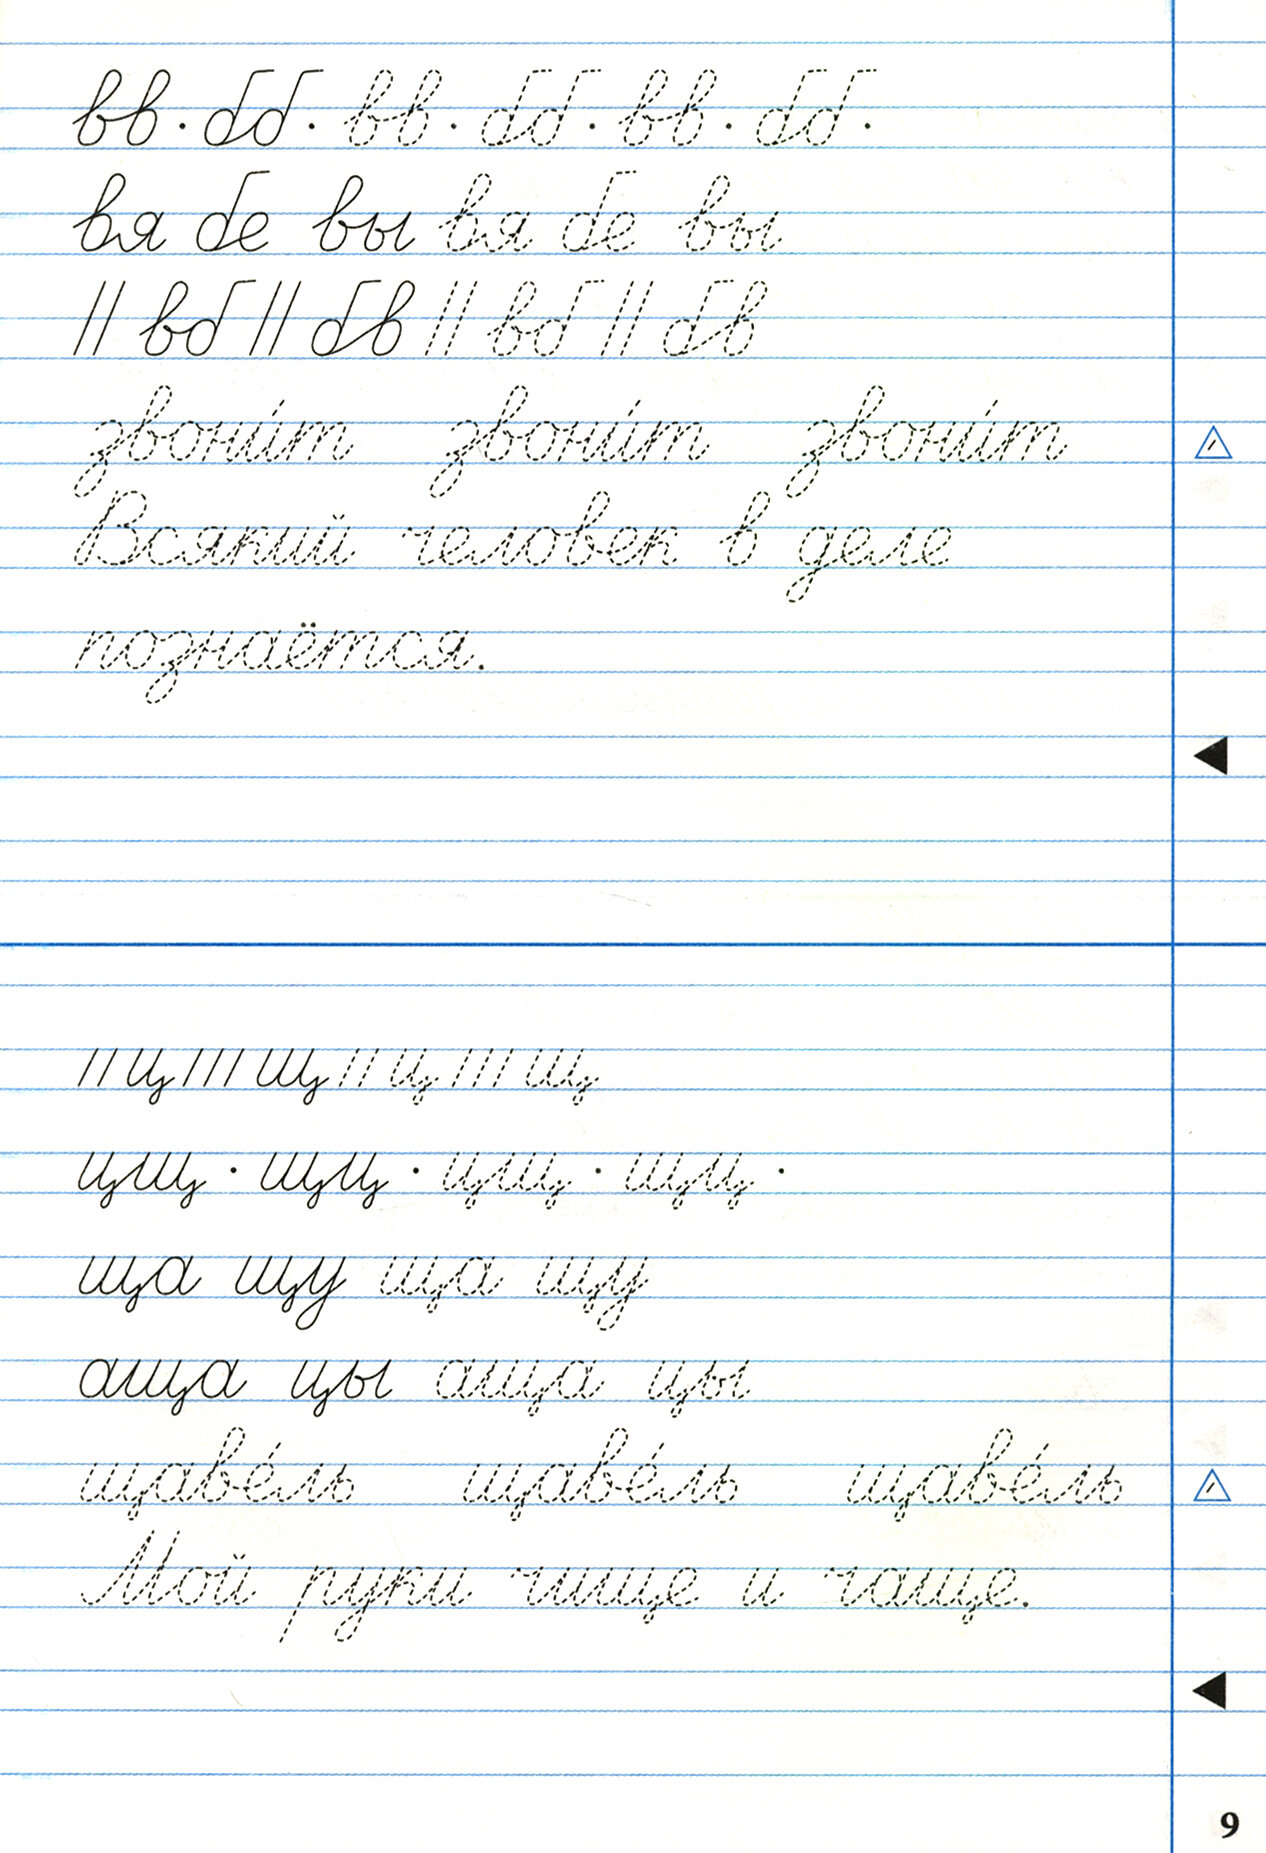 вв · бб · вв · бб · вв · бб ·
вя бе вы вя бе вы
|| вб || бв || вб || бв
звони́т звони́т звони́т
Всякий человек в деле
познаётся.
|| ц ||| щ || ц ||| щ
цщ · щц · цщ · щц ·
ща щу ща щу
аща цы аща цы
щаве́ль щаве́ль щаве́ль
Мой руки чище и чаще.
9